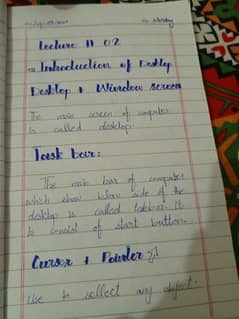 Lecture # 02
Introduction of Desktop
Desktop & Window screen
The main screen of computer
is called desktop.
Task bar:
The main bar of computer
which show below side of the
desktop is called taskbar. It
is consist of start button.
Cursor & Pointer
Use to sellect any object.